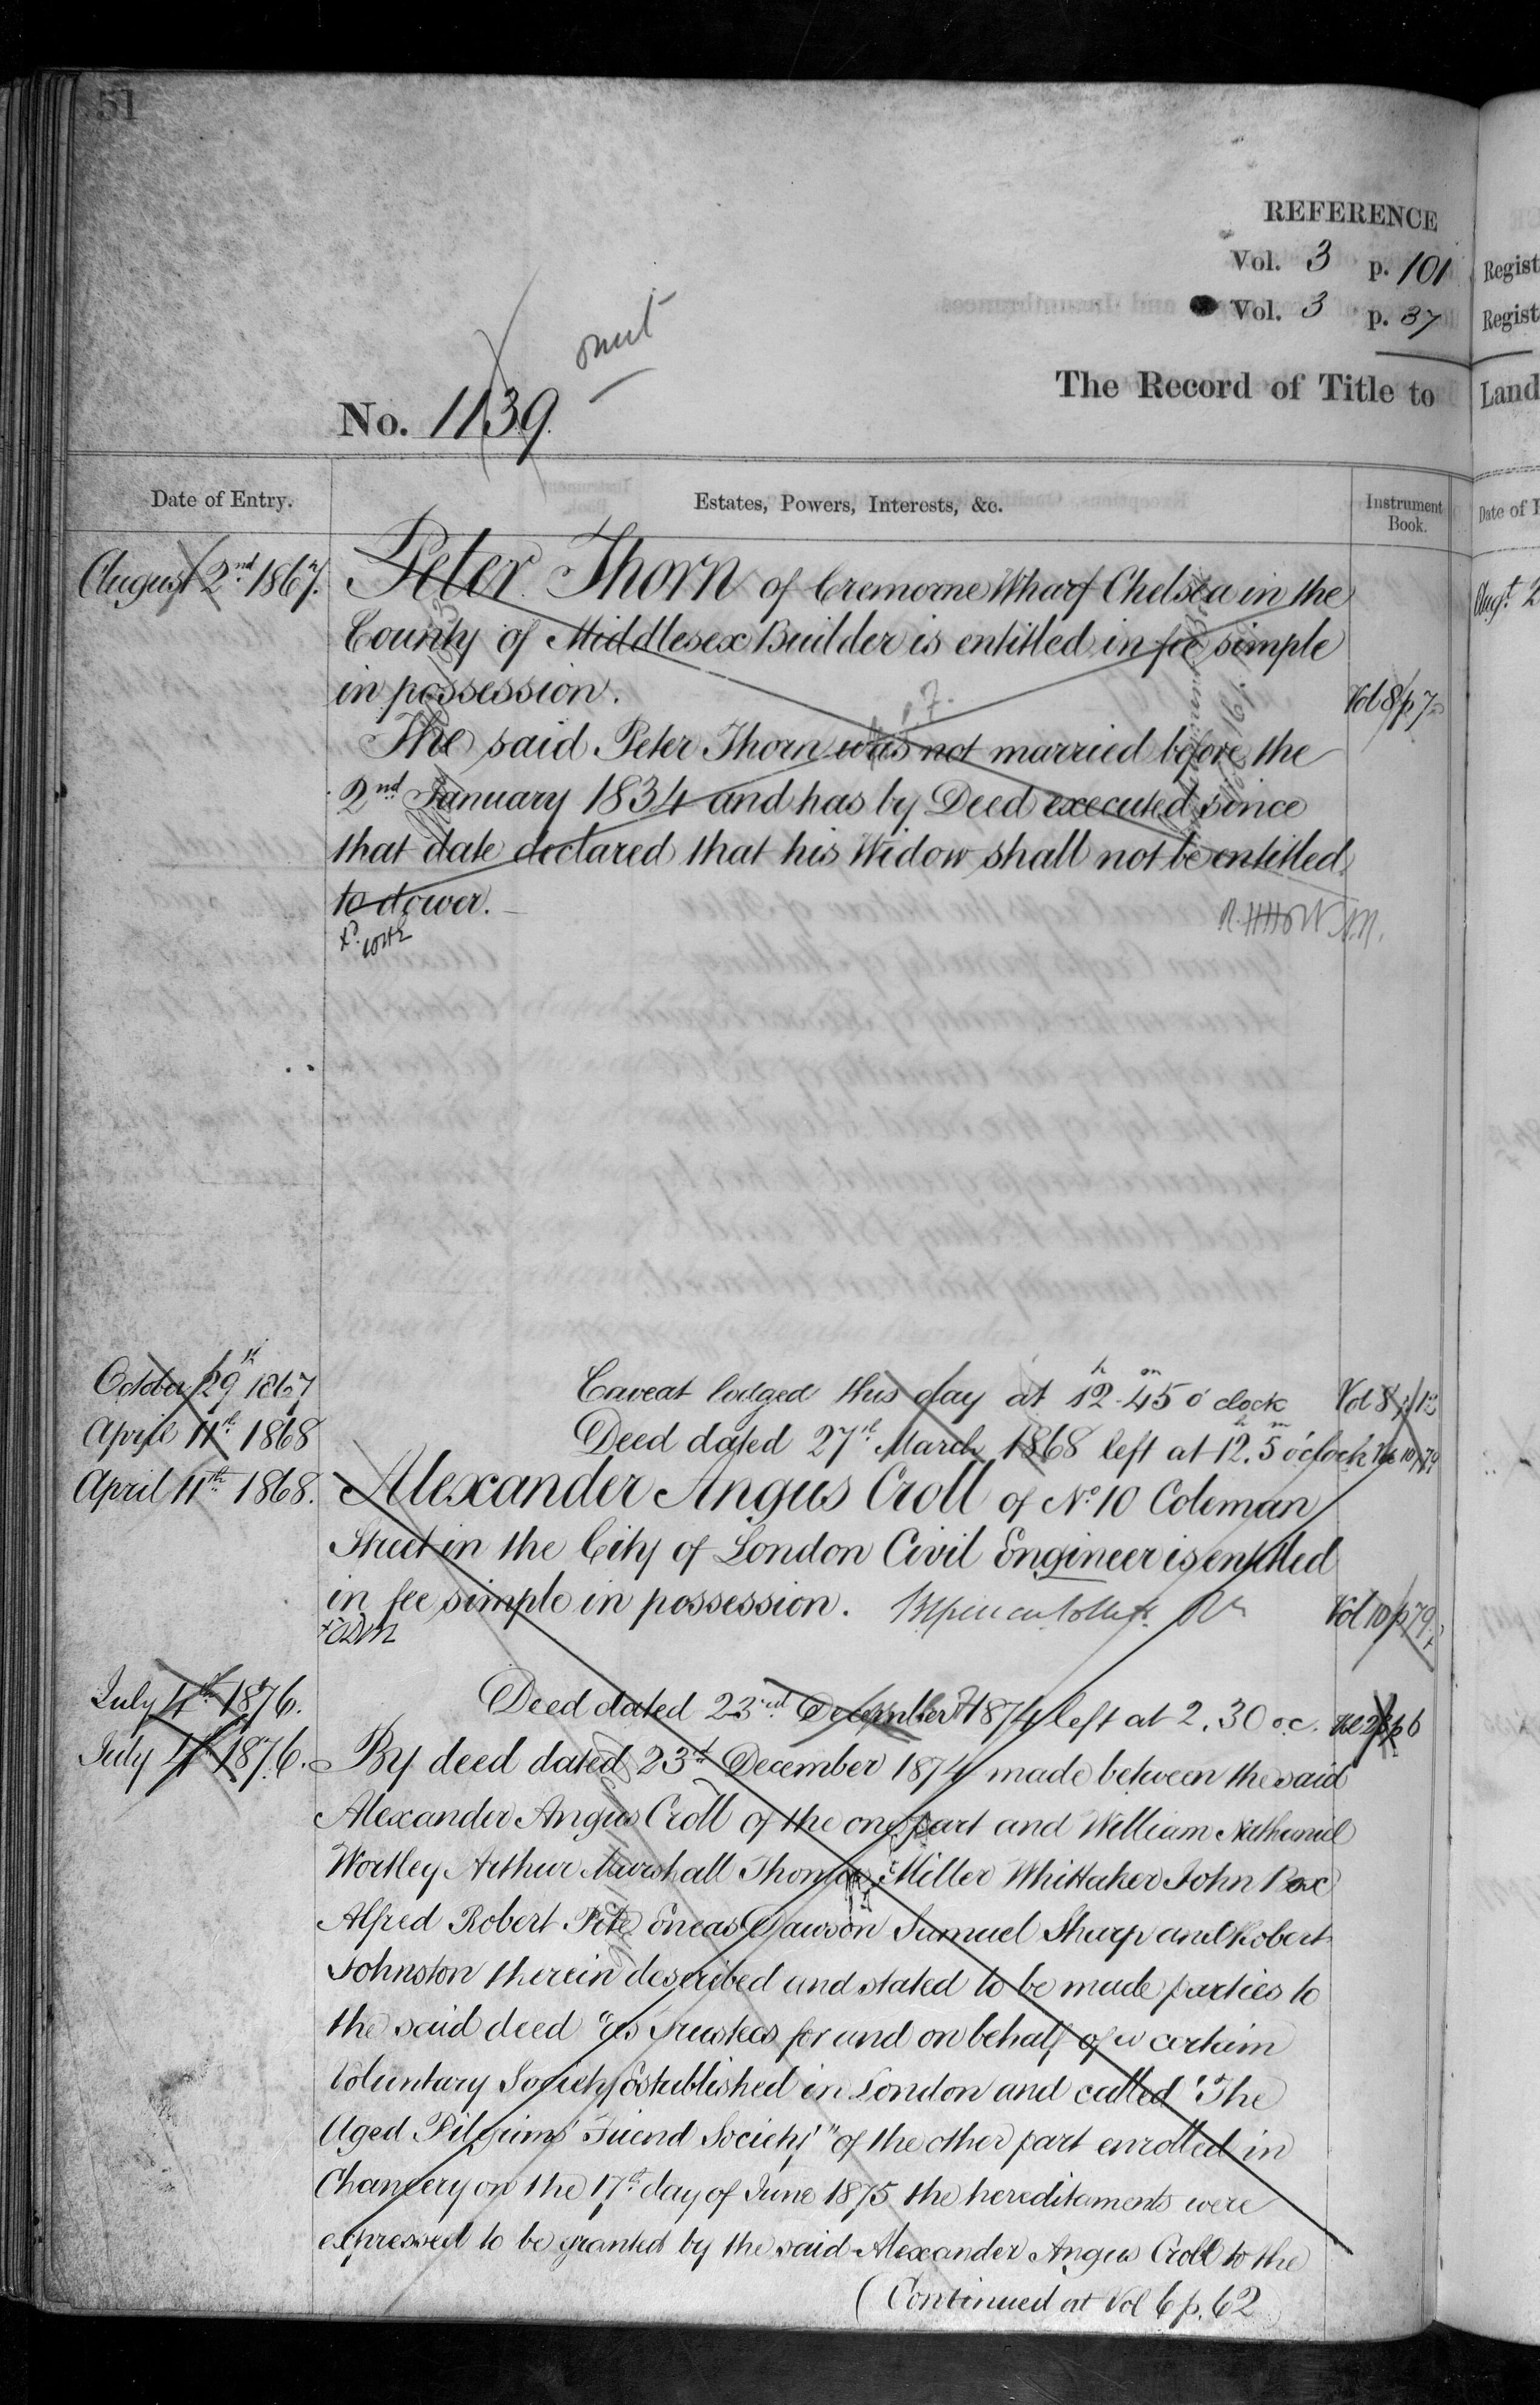 51
REFERENCE
Vol. 3 p. 101
Vol. 3 p. 37
omit
No. 1139.
The Record of Title to
Date of Entry.
Estates, Powers, Interests, &c.
Instrument Book.
August 2nd 1867.
Peter Thorn of Cremorne Wharf Chelsea in the
County of Middlesex Builder is entitled in fee simple
in possession.
Vol 8 p 7
The said Peter Thorn was not married before the
2nd January 1834 and has by Deed executed since
that date declared that his Widow shall not be entitled
to dower.
October 29th 1867
Caveat lodged this day at 12h 45m o'clock
Vol 8
April 11th 1868
Deed dated 27th March 1868 left at 12h.5m o'clock
Vol 10 p 79
April 11th 1868.
Alexander Angus Croll of No 10 Coleman
Street in the City of London Civil Engineer is entitled
in fee simple in possession.
Vol 10 p 79
July 4th 1876.
Deed dated 23rd December 1874 left at 2.30 o.c.
July 4th 1876.
By deed dated 23rd December 1874 made between the said
Alexander Angus Croll of the one part and William Nathaniel
Wortley Arthur Marshall Thomas Miller Whittaker John Box
Alfred Robert Pite Eneas Dawson Samuel Sharp and Robert
Johnston therein described and stated to be made parties to
the said deed "as Trustees for and on behalf of a certain
Voluntary Society Established in London and called 'The
Aged Pilgrims' Friend Society'" of the other part enrolled in
Chancery on the 17th day of June 1875 the hereditaments were
expressed to be granted by the said Alexander Angus Croll to the
(Continued at Vol 6 p. 62
Regist
Regist
Land
Date of
Augt 2